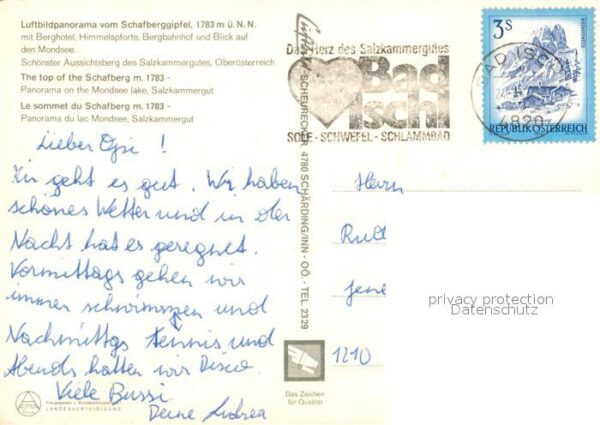 Luftbildpanorama vom Schafberggipfel, 1783 m ü. N. N.
mit Berghotel, Himmelspforte, Bergbahnhof und Blick auf
den Mondsee.
Schönster Aussichtsberg des Salzkammergutes, Oberösterreich
The top of the Schafberg m. 1783 -
Panorama on the Mondsee lake, Salzkammergut
Le sommet du Schafberg m. 1783 -
Panorama du lac Mondsee, Salzkammergut
Lieber Opi !
Mir geht es gut. Wir haben
schönes Wetter und in der
Nacht hat es geregnet.
Vormittags gehen wir
immer schwimmen und
Nachmittgs tennis und
Abends hatten wir Disco.
Viele Bussi
Deine Andrea
LANDESVERTEIDIGUNG
SCHEURECKER, 4780 SCHÄRDING/INN - OÖ. - TEL. 23 29
Das Zeichen
für Qualität
Das Herz des Salzkammergutes
Bad
Ischl
SOLE - SCHWEFEL - SCHLAMMBAD
BAD ISCHL
4820
3 S
REPUBLIK ÖSTERREICH
Herrn
Rud
jene
1210
privacy protection
Datenschutz